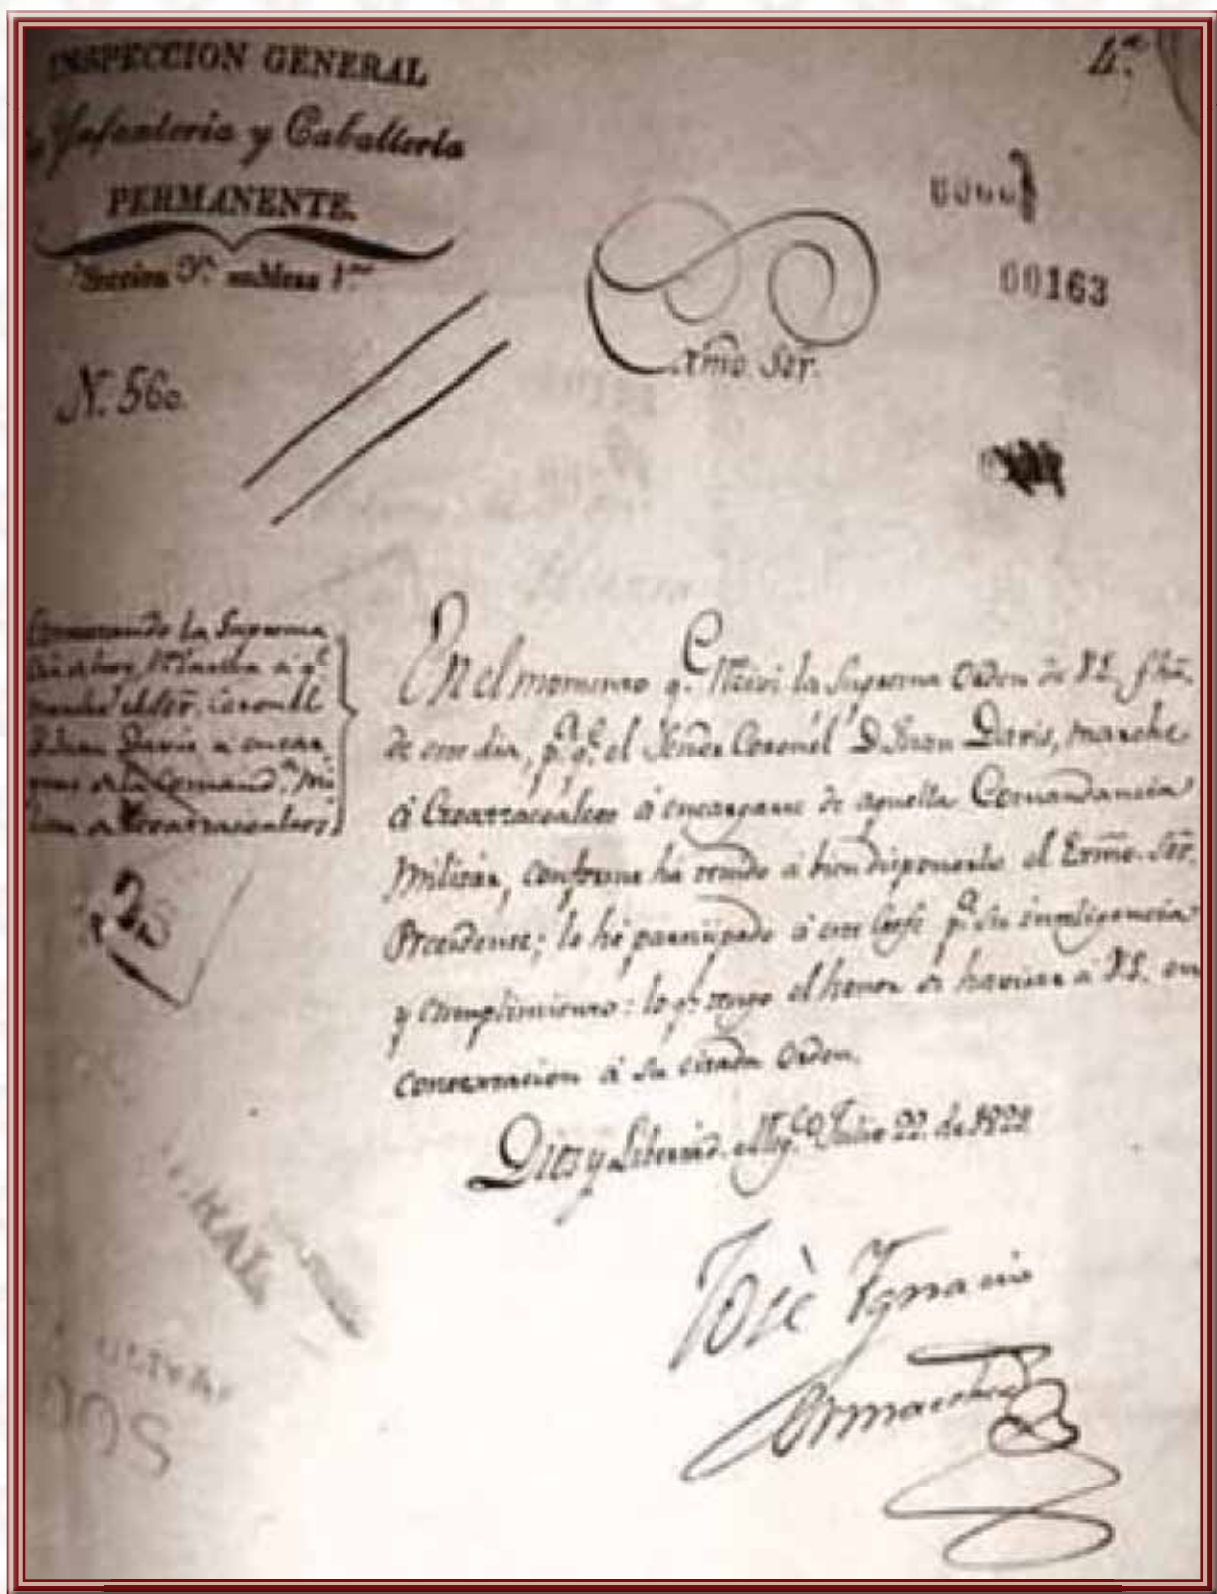 INSPECCION GENERAL
Ynfanteria y Caballeria
PERMANENTE.
Seccion
4.ª
00163
N. 560.
Exmo. Sõr.
la Suprema
q.e
Sõr. Coronel
D. Juan Davis a encar
de la Comand.ª Mi
En el momento q.e recivi la Suprema Orden de V.E. fhã.
de este dia, p.ª q.e el Señor Coronél D. Juan Davis, marche
á Goatzacoalcos á encargarse de aquella Comandancia
Militar, conforme ha tenido á bien disponerlo el Exmo. Sõr.
Presidente; lo hé participado á este Gefe p.ª su inteligencia
y cumplimiento: lo q.e tengo el honor de á V.E. en
contestacion á su citada Orden.
Dios y Libertad. Mex.co Julio 22. de
José Ygnacio
Ormaechea